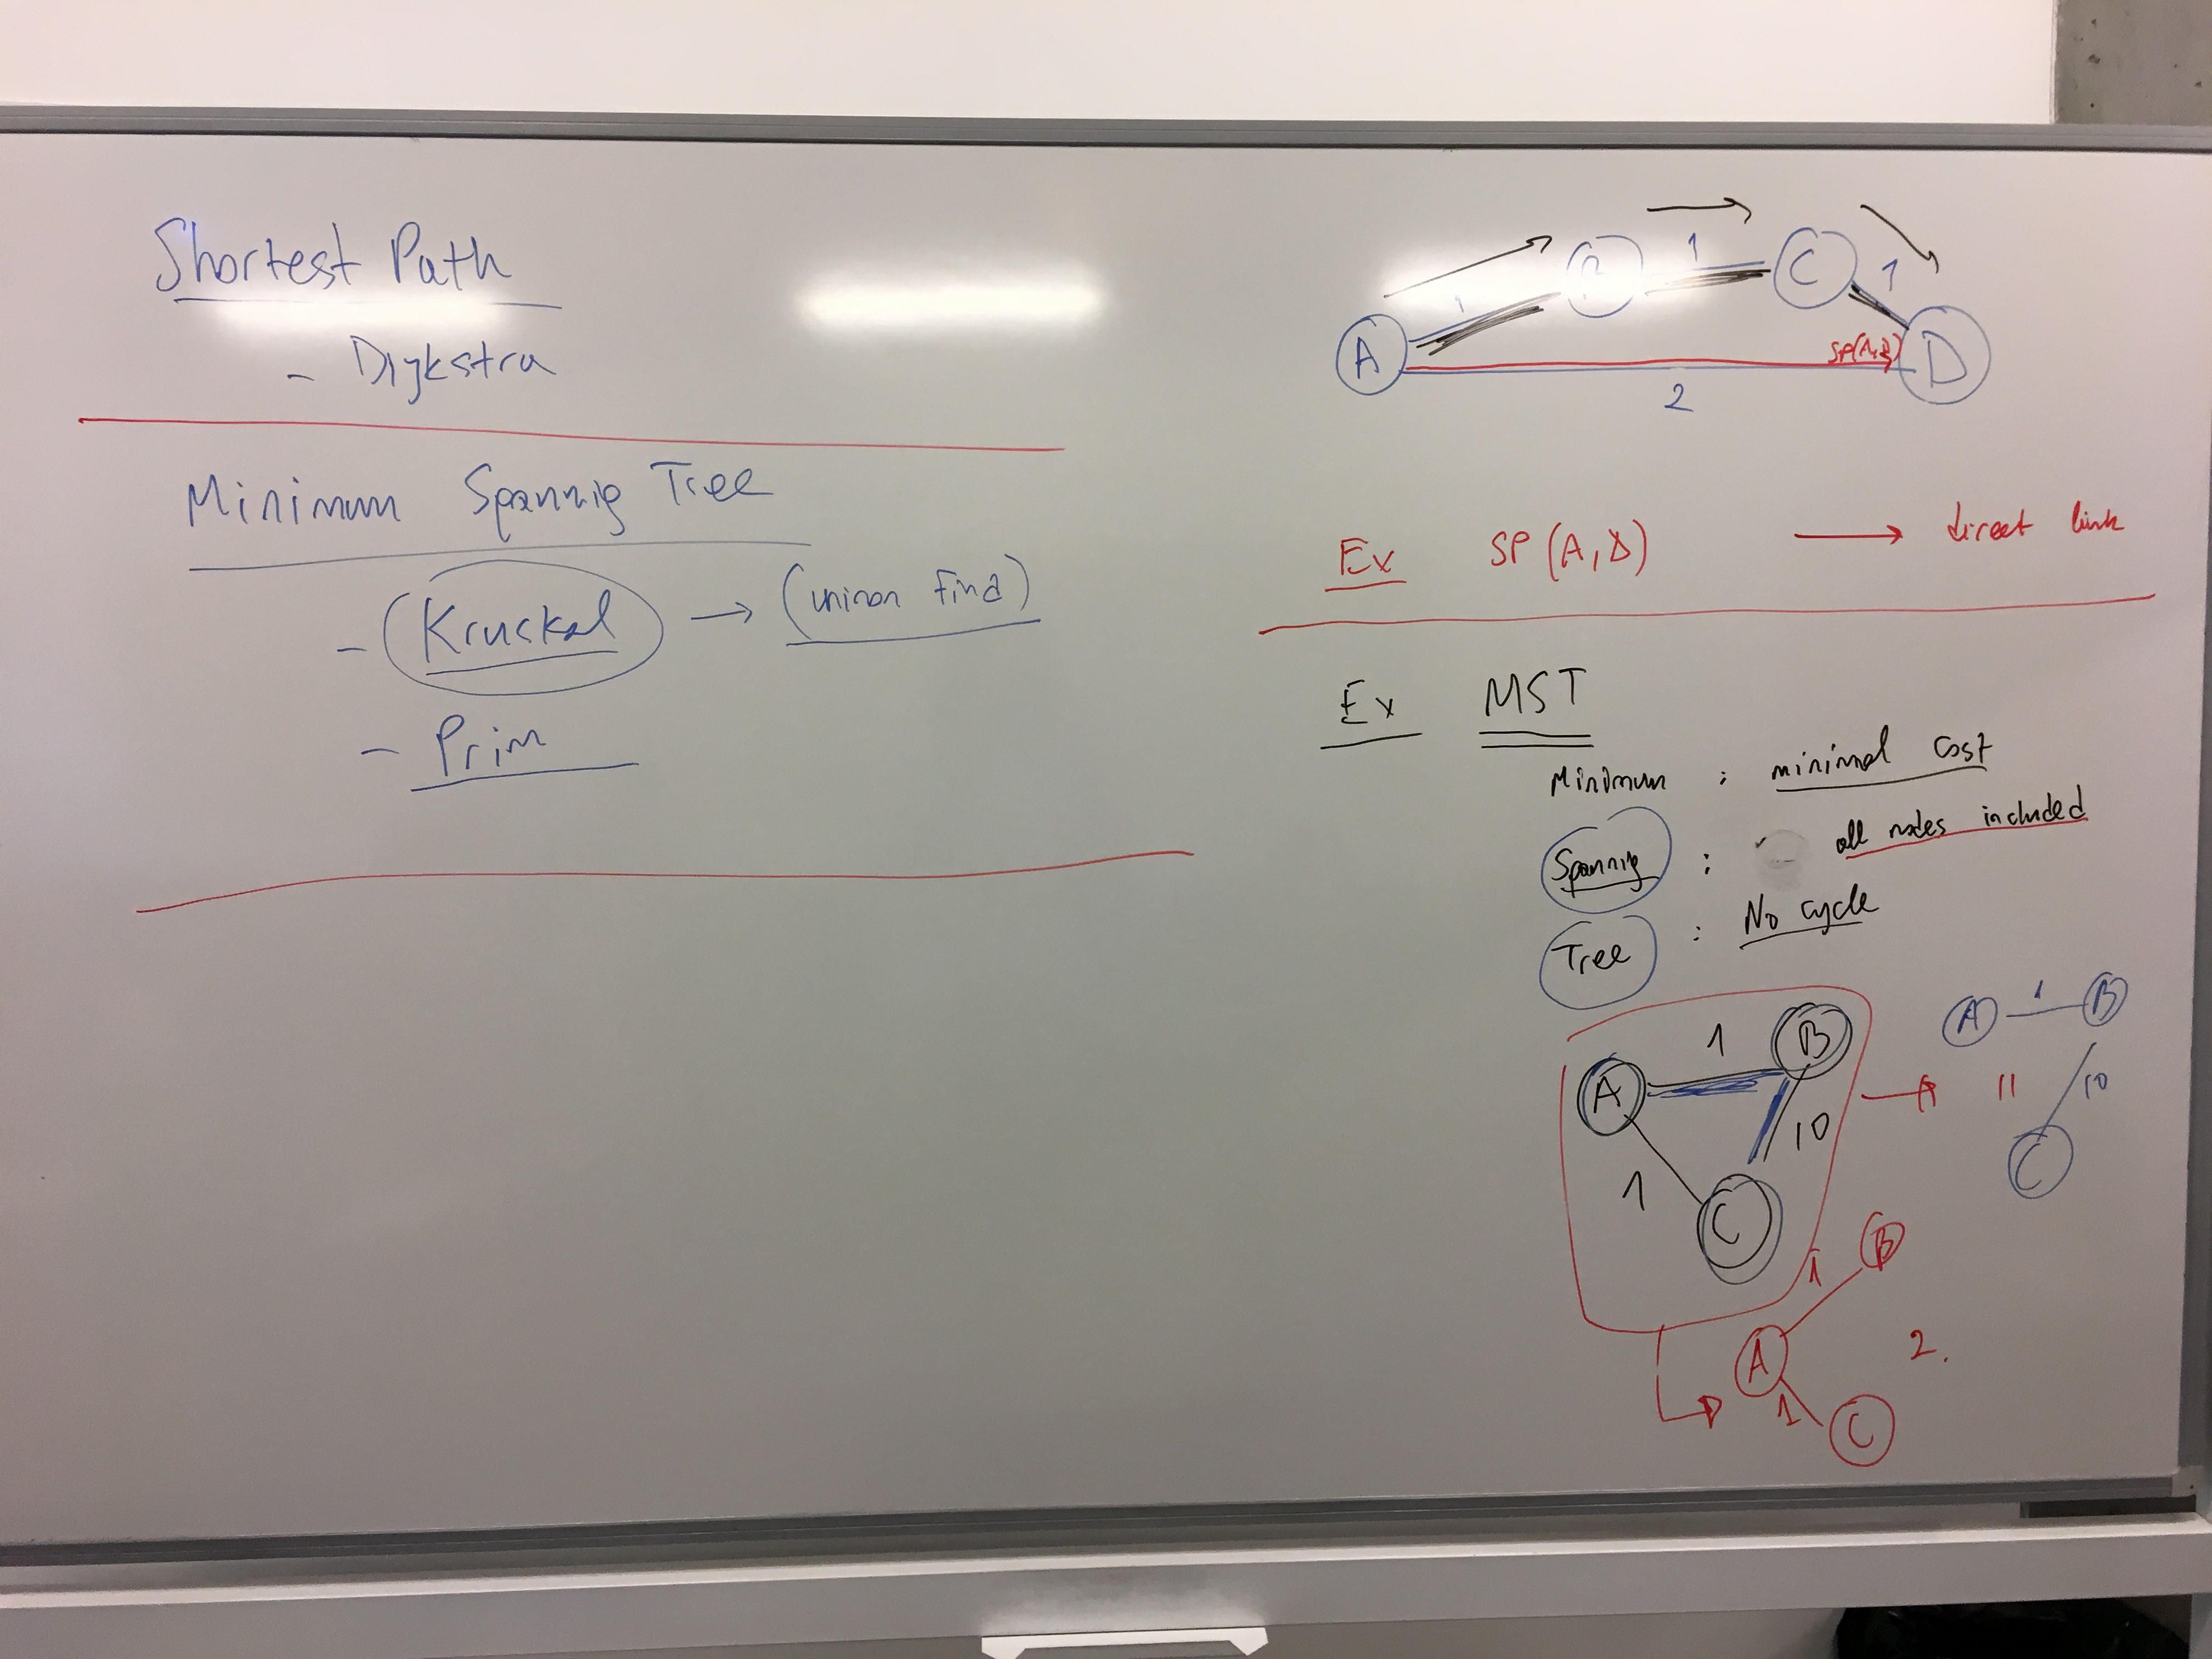 Shortest Path
- Dijkstra
Minimum Spannig Tree
- (Kruckal) → (union find)
- Prim
A 1 B 1 C 1 D
SP(A,D)
2
Ex SP (A, D) → direct link
Ex MST
Minimum : minimal cost
Spannig : all nodes included
Tree : No cycle
A 1 B
10
1
C
A 1 B
11 10
C
B
1
A 2.
1
C